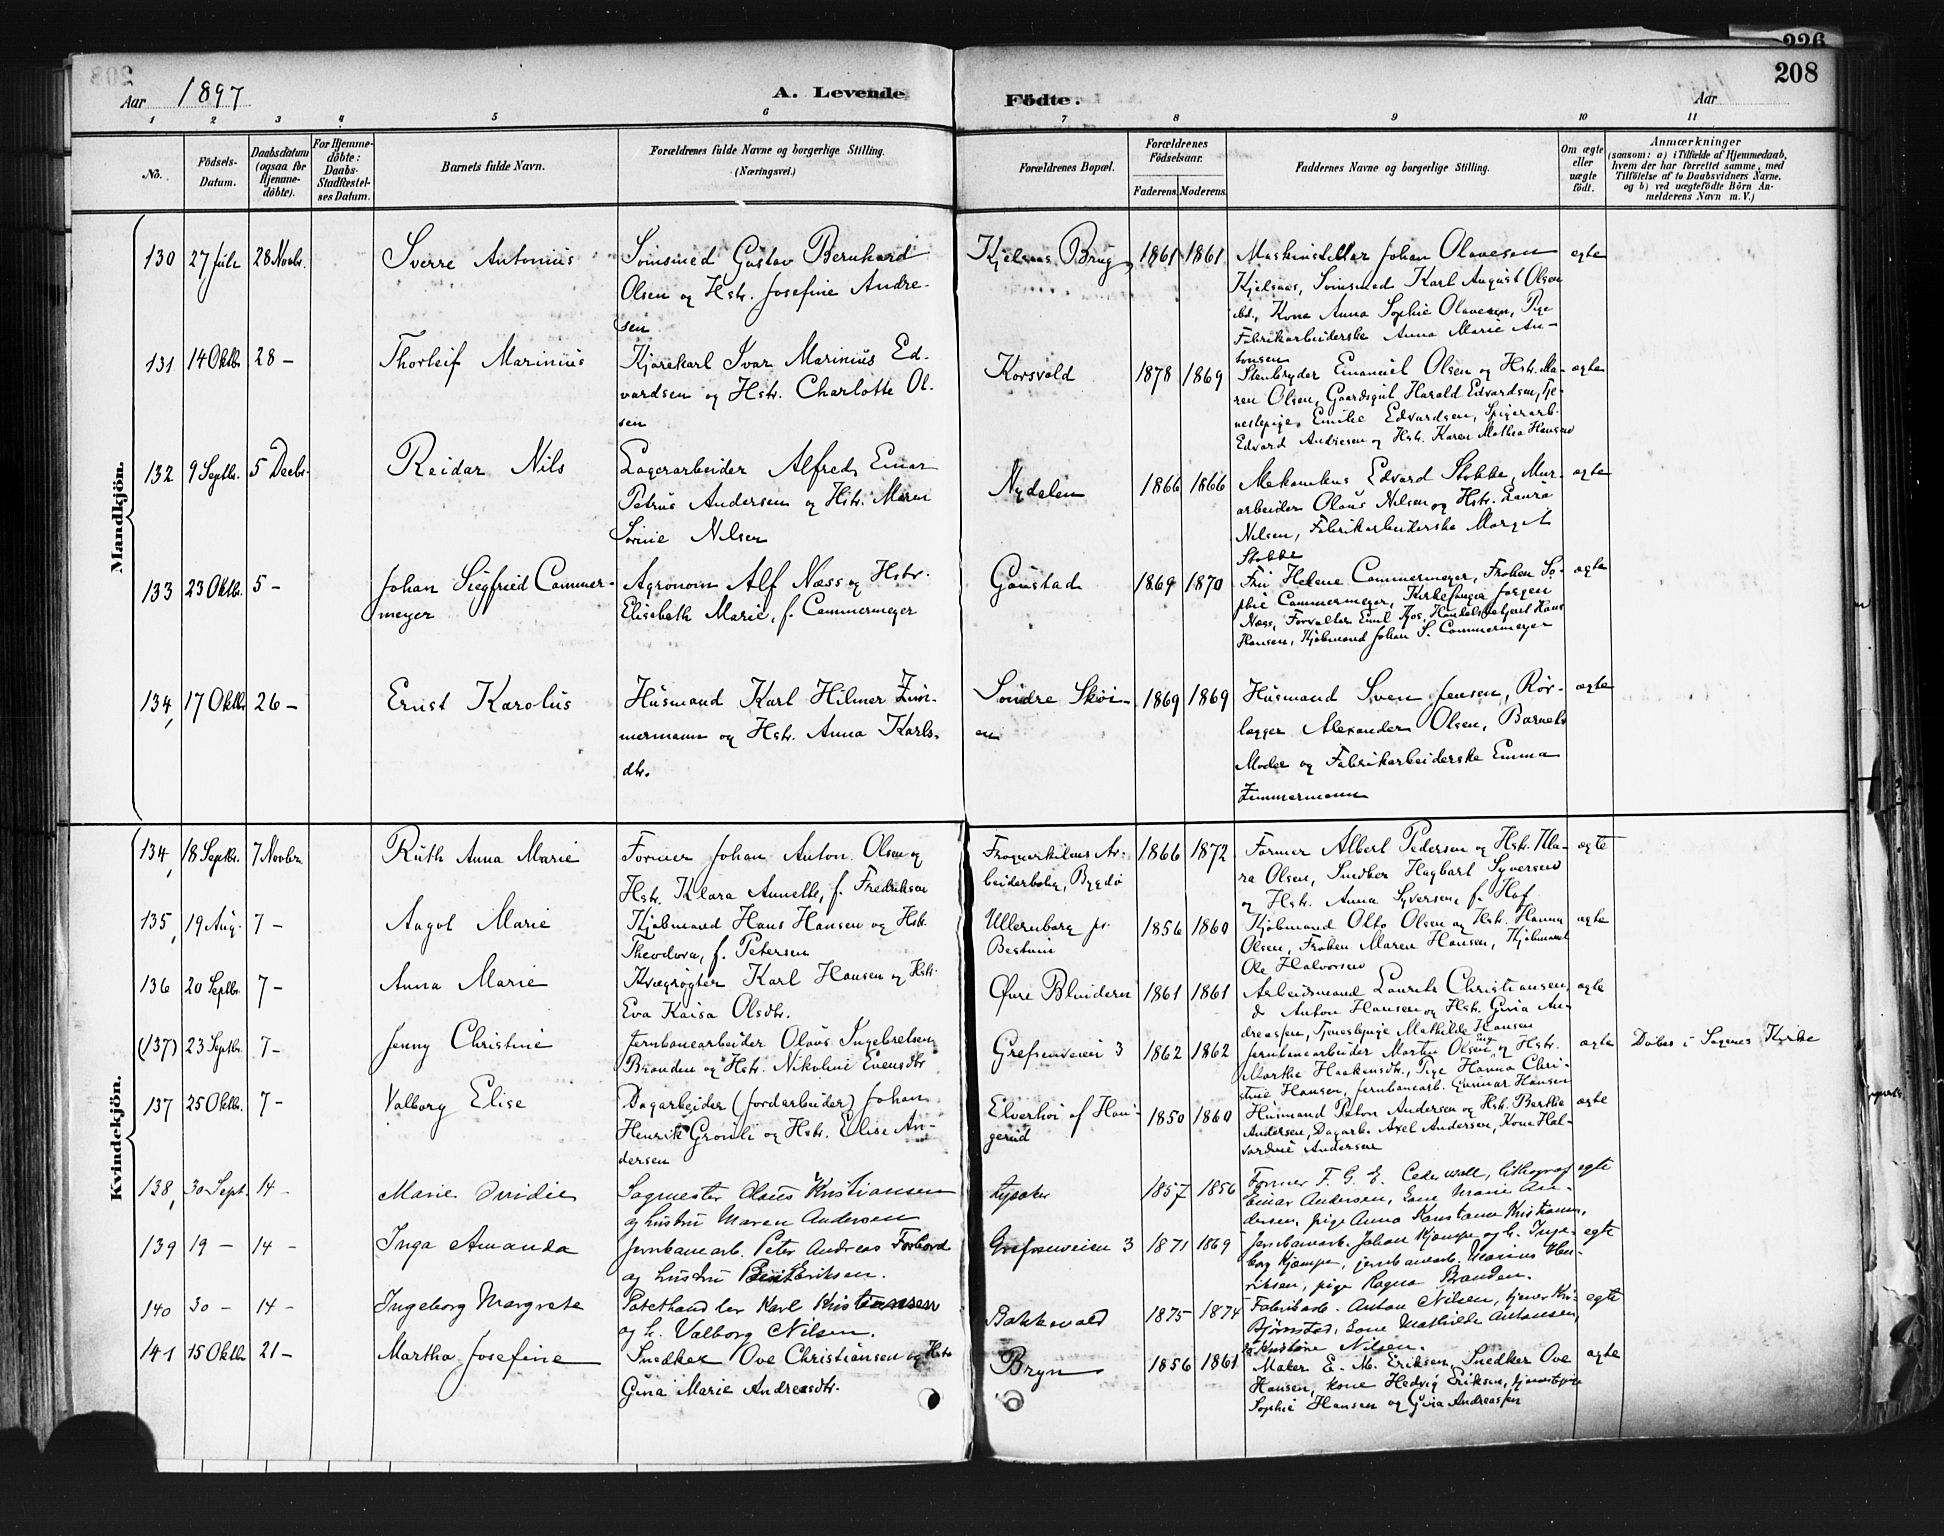 226
208
Aar 1897
A. Levende Födte.
Aar
1 2 3 4 5 6 7 8 9 10 11
No.
Födsels-Datum.
Daabsdatum (ogsaa for Hjemmedöbte).
For Hjemmedöbte: Daabs-Stadfæstelses Datum.
Barnets fulde Navn.
Forældrenes fulde Navne og borgerlige Stilling.
(Næringsvei.)
Forældrenes Bopæl.
Forældrenes Födselsaar.
Faderens. Moderens.
Faddernes Navne og borgerlige Stilling.
Om ægte eller uægte födt.
Anmærkninger
(saasom: a) i Tilfælde af Hjemmedaab, hvem der har forrettet samme, med Tilföielse af to Daabsvidners Navne. og b) ved uægtefödte Börn Anmelderens Navn m. V.)
Mandkjön.
130 27 Juli 28 Novbr. Sverre Antonius
Gustav Bernhard
Olsen og Hstr. Josefine Andre-
sen
Kjelsaas Brug 1861 1861
Johan Olavesen
Kjelsaas, Karl August Olsen
ibd., Kone Anna Sophie Olavesen, Pige
Fabrikarbeiderske Anna Marie An-
tonsen
ægte
131 14 Oktbr. 28 — Thorleif Marinius
Kjørekarl Ivar Marinius Ed-
vardsen og Hstr. Charlotte Ol-
sen
Korsvold 1878 1869
Stenbryder Emanuel Olsen og Hstr. Ma-
ren Olsen, Gaardsgut Harald Edvardsen, Tje-
nestepige Emilie Edvardsen, Spigerarb.
Edvard Andresen og Hstr. Karen Mathea Hansen
ægte
132 9 Septbr. 5 Decbr. Reidar Nils
Lagerarbeider Alfred Einar
Petrus Andersen og Hstr. Maren
Sørine Nilsen
Nydalen 1866 1866
Mekanikus Edvard Stokke, Mur-
arbeider Olaus Nilsen og Hstr. Laura
Nilsen, Fabrikarbeiderske Margit
Stokke
ægte
133 23 Oktbr. 5 — Johan Siegfried Cammer-
meyer
Agronom Alf Næss og Hstr.
Elisabeth Marie, f. Cammermeyer
Gaustad 1869 1870
Fru Helene Cammermeyer, Frøken So-
phie Cammermeyer, Kirkesanger Jørgen
Næss, Forvalter Emil Hans
Hansen, Kjøbmand Johan S. Cammermeyer
ægte
134, 17 Oktbr. 26 — Ernst Karolus
Husmand Karl Hilmer Zim-
mermann og Hstr. Anna Karls-
dtr.
Søndre Skøi-
en
1869 1869
Husmand Sven Jensen, Rør-
lægger Alexander Olsen, Barnets
Moder og Fabrikarbeiderske Emma
Zimmermann
ægte
Kvindekjön.
134, 18 Septbr. 7 Novbr. Ruth Anna Marie
Former Johan Anton Olsen og
Hstr. Klara Annette, f. Fredriksen
Frognerkilens Ar-
beiderbolig, Bygdø
1866 1872
Former Albert Pedersen og Hstr. Kla-
ra Olsen, Snedker Hagbart Syversen
og Hstr. Anna Syversen f. Hof
ægte
135, 19 Aug. 7 — Aagot Marie
Kjøbmand Hans Hansen og Hstr.
Theodora, f. Petersen
Ullernborg pr.
Bestum
1856 1860
Kjøbmand Otto Olsen og Hstr. Hanna
Olsen, Frøken Maren Hansen, Kjøbmand
Ole Halvorsen
ægte
136 20 Septbr. 7 — Anna Marie
Kvægrøgter Karl Hansen og Hstr.
Eva Kaisa Olsdtr.
Øvre Blindern 1861 1861
Arbeidsmand Laurits Christiansen,
Anton Hansen og Hstr. Gina An-
dreassen, Tjenestepige Mathilde Hansen
ægte
(137) 23 Septbr. 7 — Jenny Christine
Jernbanearbeider Olaus Ingebretsen
Branden og Hstr. Nikoline Evensdtr
Grefsenveien 3 1862 1862
Jernbanearbeider Morten Olsen og Hstr.
Marthe Haakensdtr., Pige Hanna Chri-
stine Hansen, Jernbanearb. Gunnar Hansen
ægte
Døbes i Sagenes Kirke
137 25 Oktbr. 7 — Valborg Elise
Dagarbeider (Jordarbeider) Johan
Henrik Gronli og Hstr. Elise An-
dersen
Elverhøi af Hau-
gerud
1850 1860
Husmand Andersen og Hstr. Berthe
Andersen, Dagarb. Axel Andersen, Kone Hal-
vardine Andersen
ægte
138, 30 Sept. 14 — Marie
Sagmester Olaus Kristiansen
og hustru Maren Andersen
Lysaker 1857 1856
Former F. G. E. Cederwall, lithograf
Einar Andersen, kone Marie An-
dersen, pige Anna Konstance Kristiansen,
egte
139 19 — 14 — Inga Amanda
Jernbanearb. Peter Andreas Forbord
og hustru Eriksen.
Grefsenveien 3 1871 1869
Jernbanearb. Johan Kjempe og h. Inge-
borg Kjempe, jernbanearb. Marius Hen-
riksen, pige Ragna Branden.
egte
140 30 — 14 — Ingeborg Margrete
Karl Kristiansen
og h. Valborg Nilsen.
Bakkevold 1875 1874
Fabrikarb. Anton Nilsen,
Bjørnstad, kone Mathilde Antonsen,
Kristine Nilsen.
egte
141 15 Oktbr 21 — Martha Josefine
Snedker Ove Christiansen og Hstr
Gina Marie Andreasdtr.
Bryn 1856 1861
Maler E. M. Eriksen, Snedker Ove
Hansen, kone Hedvig Eriksen, tjenestepige
Sophie Hansen og Gina Andreassen
ægte